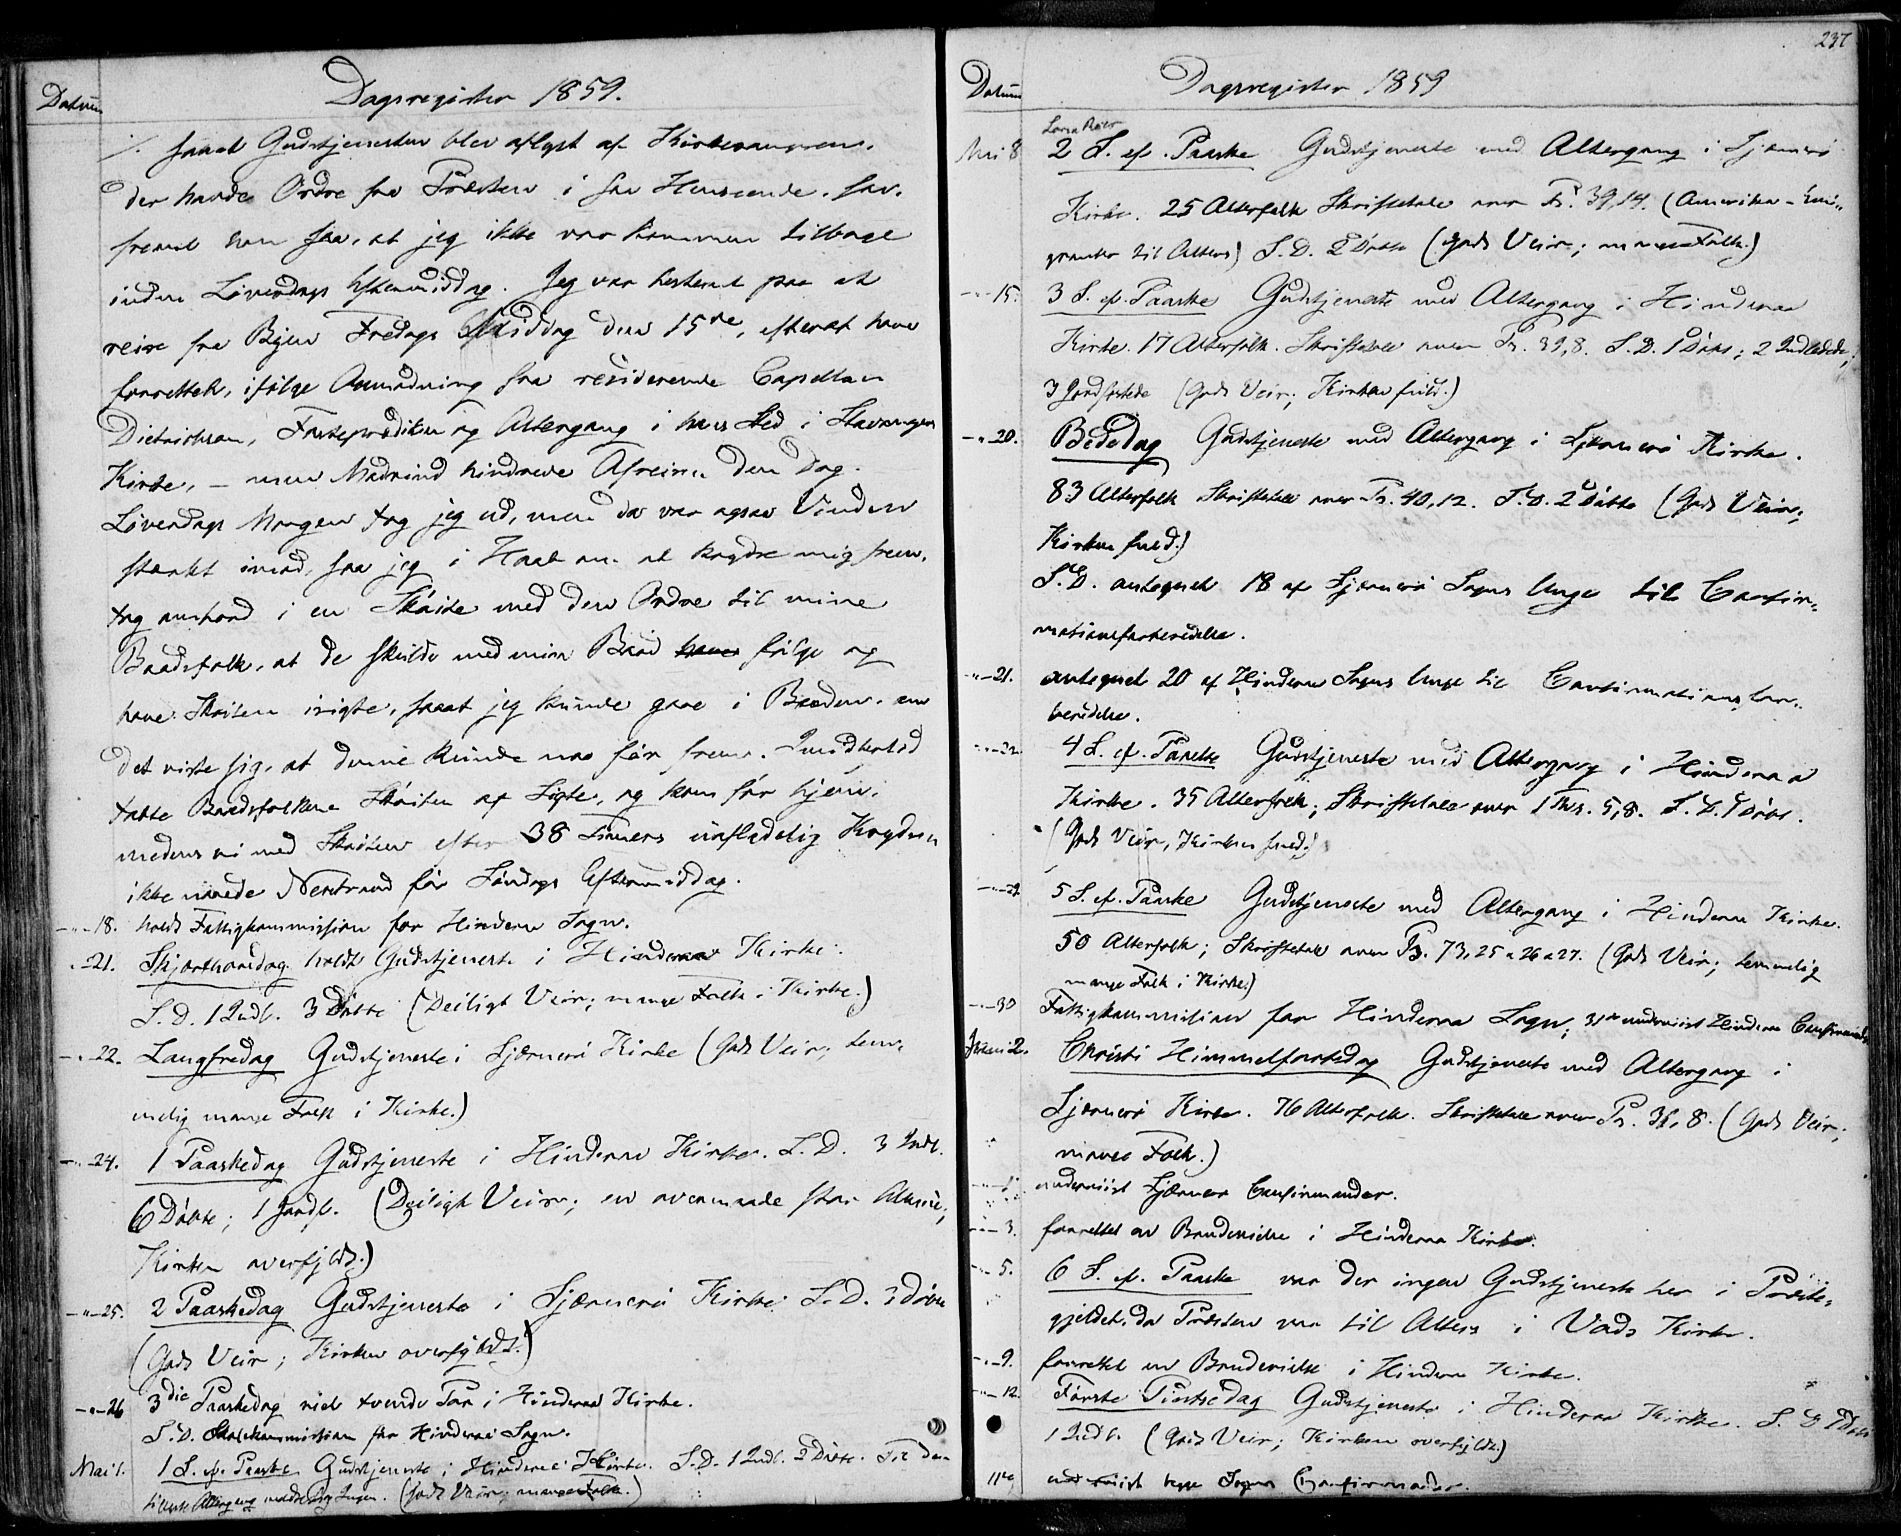 Datum
Dagsregister 1859.
./. saaat Gudstjenesten blev aflyst af Kirkesangeren,
der havde Ordre fra Præsten i saa Henseende, saa-
fremt han saa, at jeg ikke var kommen tilbage
inden Löverdags Eftermiddag. Jeg var bestemt paa at
reise fra Byen Fredags Middag den 15de, efterat have
forrettet, ifölge Anmodning fra residerende Capellan
Dietrichson, Fasteprædiken og Altergang i hans Sted i Stavanger
Kirke, – men Modvind hindrede Afreisen den Dag.
Löverdags Morgen tog jeg ud, men da var ogsaa Vinden
stærkt imod, saa jeg i Haab om at krydse mig frem,
tog ombord i en Sköite med den Ordre til mine
Baadsfolk, at de skulde med min Baad fölge og
have Sköiten isigte, saaat jeg kunde gaae i Baaden, om
det viste sig, at denne kunde naae för frem. Imidlertid
tabte Baadsfolkene Sköiten af Sigte, og kom för hjem,
medens vi med Sköiten efter 38 Timers uafladelig Krydsen
ikke naaede Nerstrand för Söndags Eftermiddag.
-"-18. holdt Fattigkommission for Hinderaa Sogn.
-"-21. Skjærthorsdag holdt Gudstjeneste i Hinderaa Kirke.
S. D. 1 Indl. 3 Döbte (Deiligt Veir; mange Folk i Kirke.)
-"-22. Langfredag Gudstjeneste i Sjærneröe Kirke (Godt Veir; tem-
melig mange Folk i Kirke.)
-"-24. 1 Paaskedag Gudstjeneste i Hinderaa Kirke. S. D. 3 Indl.
6 Döbte; 1 Jordf. (Deiligt Veir; en overmaade stor Almue;
Kirken overfyldt.)
-"-25. 2 Paaskedag Gudstjeneste i Sjærneröe Kirke. S. D. 3 Döbte
(Godt Veir; Kirken overfyldt.)
-"-26 3die Paaskedag viet tvende Par i Hinderaa Kirke.
S. D. Skolekommission for Hinderaa Sogn.
Mai 1. 1 S. ef. Paaske Gudstjeneste i Hinderaa Kirke. S. D. 1 Indl. 2 Döbte. Til den
Altergang meldte sig Ingen. (Godt Veir; mange Folk.)
237
Datum
Dagsregister 1859
Mai 8 2 S. ef. Paaske Gudstjeneste med Altergang i Sjærnerö
Kirke. 25 Alterfolk Skriftetale over Ps. 39,14. (Amerika-Emi-
granter til Alters) S. D. 2 Döbte (Godt Veir; mange Folk.)
-"-15. 3 S. ef. Paaske Gudstjeneste med Altergang i Hinderaa
Kirke. 17 Alterfolk. Skriftetale over Ps. 39,8. S. D. 1 Döbt; 2 Indledede;
3 Jordfæstede (Godt Veir; Kirken fuld.)
-"-20. Bededag Gudstjeneste med Altergang i Sjærnerö Kirke.
83 Alterfolk Skriftetale over Ps. 40,12. S. D. 2 Döbte (Godt Veir;
Kirken fuld.)
S. D. antegnet 18 af Sjærnerö Sogns Unge til Confir-
mationsforberedelse.
-"-21. antegnet 20 af Hinderaa Sogns Unge til Confirmationsfor-
beredelse.
-"-22. 4 S. ef. Paaske Gudstjeneste med Altergang i Hinderaa
Kirke. 35 Alterfolk; Skriftetale over 1 Ths. 5,8. S. D. 1 Döbt.
(Godt Veir, Kirken fuld.)
-"-29. 5 S. ef. Paaske Gudstjeneste med Altergang i Hinderaa Kirke.
50 Alterfolk; Skriftetale over Ps. 73,25 a 26 a 27. (Godt Veir; temmelig
mange Folk i Kirke.)
-"-30 Fattigkommission for Hinderaa Sogn; 31te underviist Hinderaa Confirmander
Juni 2. Christi Himmelfartsdag Gudstjeneste med Altergang i
Sjærnerö Kirke. 76 Alterfolk. Skriftetale over Ps. 31,8. (Godt Veir;
mange Folk.)
underviist Sjærneröe Confirmander.
-"-3. forrettet en Brudevielse i Hinderaa Kirke.
-"-5. 6 S. ef. Paaske var der ingen Gudstjeneste her i Præste-
gjeldet, da Præsten var til Alters i Vads Kirke.
-"-9. forrettet en Brudevielse i Hinderaa Kirke.
-"-12. Förste Pintsedag Gudstjeneste i Hinderaa Kirke. S. D. 1 Döbt
1 Indl. (Godt Veir; Kirken overfyldt.)
11te underviist begge Sognes Confirmander.